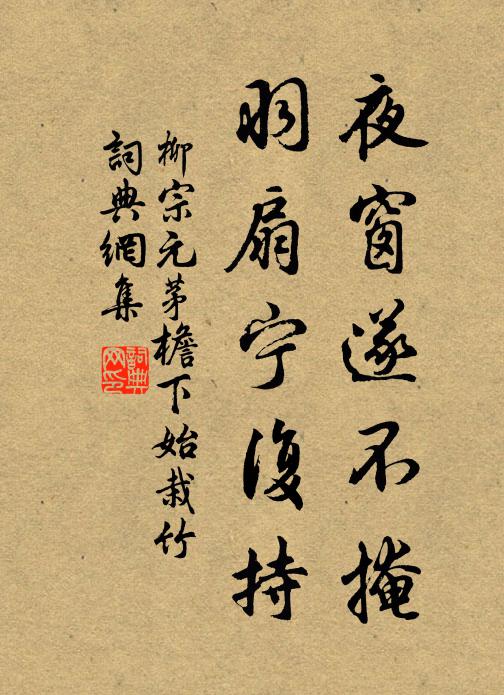 夜窗遂不掩
羽扇宁復持
柳宗元茅檐下始栽竹
詞典網集
詞典网印